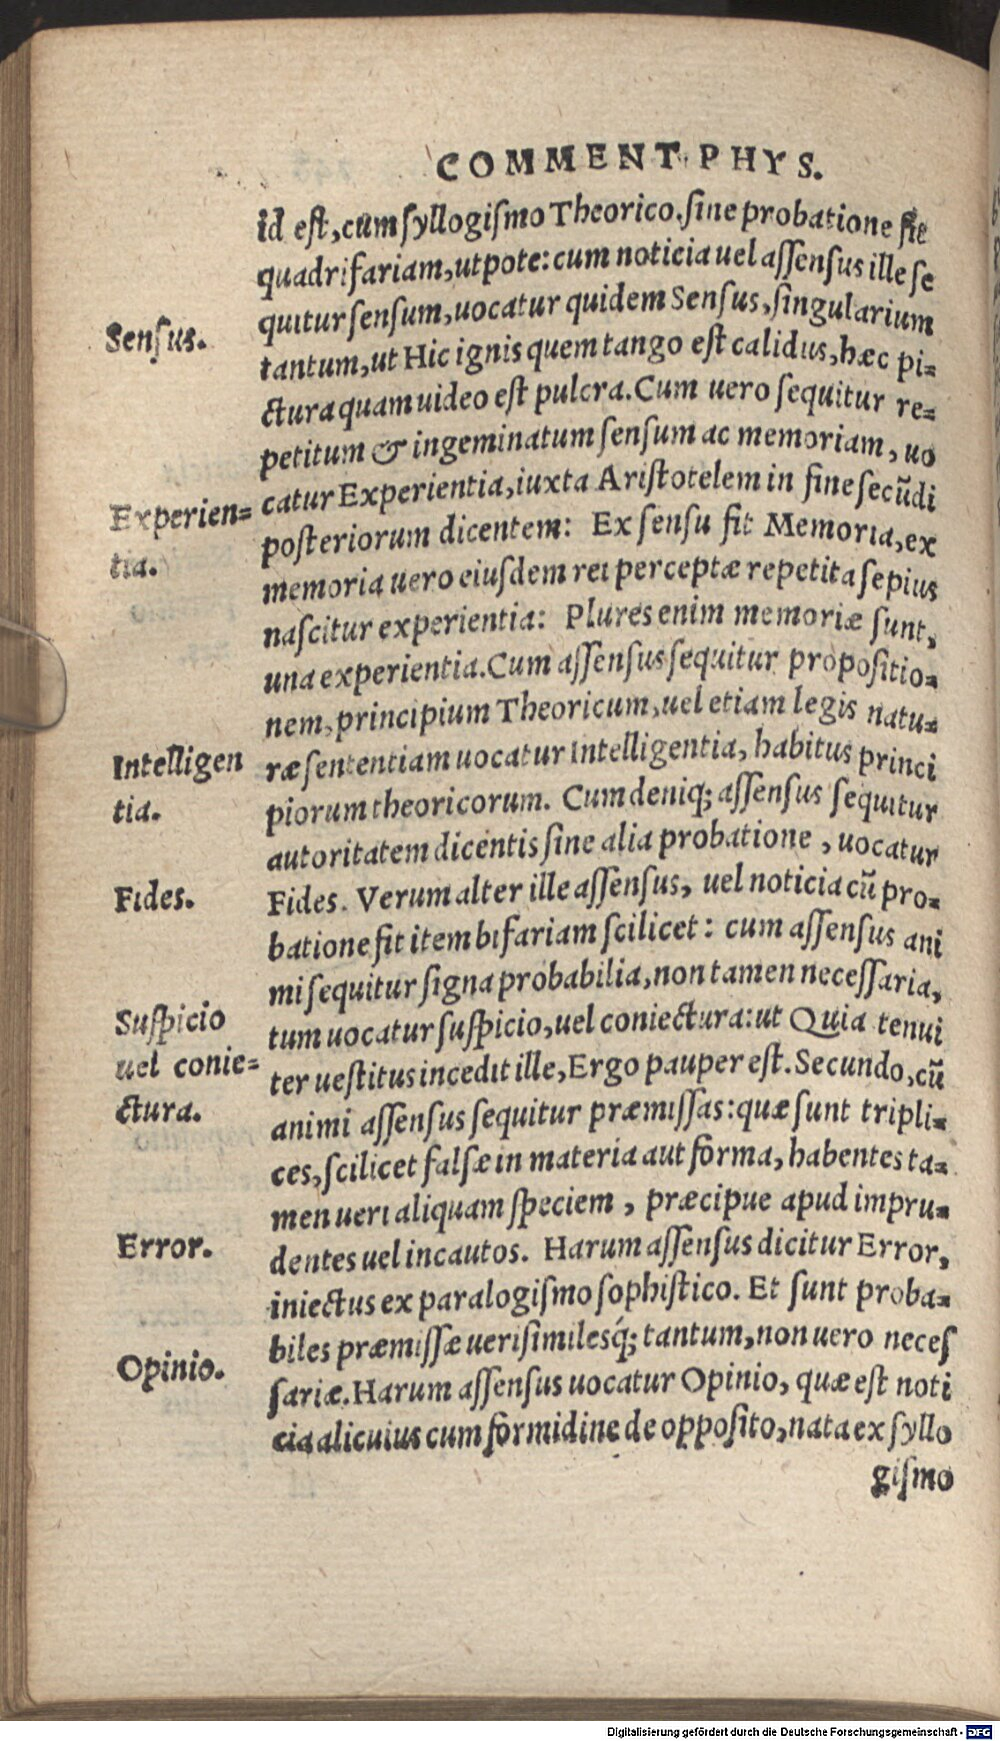 COMMENT. PHYS.
id est, cum syllogismo Theorico. sine probatione fit
quadrifariam, utpote: cum noticia uel assensus ille se
quitur sensum, uocatur quidem Sensus, singularium
Sensus.
tantum, ut Hic ignis quem tango est calidus, hæc pi=
ctura quam uideo est pulcra. Cum uero sequitur re=
petitum & ingeminatum sensum ac memoriam, uo
catur Experientia, iuxta Aristotelem in fine secūdi
Experien=
tia.
posteriorum dicentem: Ex sensu fit Memoria, ex
memoria uero eiusdem rei perceptæ repetita sepius
nascitur experientia: Plures enim memoriæ sunt,
una experientia. Cum assensus sequitur propositio=
nem, principium Theoricum, uel etiam legis natu=
ræ sententiam uocatur Intelligentia, habitus princi
Intelligen
tia.
piorum theoricorum. Cum deniq; assensus sequitur
autoritatem dicentis sine alia probatione, uocatur
Fides. Verum alter ille assensus, uel noticia cū pro=
Fides.
batione fit item bifariam scilicet: cum assensus ani
mi sequitur signa probabilia, non tamen necessaria,
tum uocatur suspicio, uel coniectura: ut Quia tenui
Suspicio
uel conie=
ctura.
ter uestitus incedit ille, Ergo pauper est. Secundo, cū
animi assensus sequitur præmissas: quæ sunt tripli=
ces, scilicet falsæ in materia aut forma, habentes ta=
men ueri aliquam speciem, præcipue apud impru=
dentes uel incautos. Harum assensus dicitur Error,
Error.
iniectus ex paralogismo sophistico. Et sunt proba=
biles præmissæ uerisimilesq́; tantum, non uero neces
sariæ. Harum assensus uocatur Opinio, quæ est noti
Opinio.
cia alicuius cum formidine de opposito, nata ex syllo
gismo
Digitalisierung gefördert durch die Deutsche Forschungsgemeinschaft - DFG